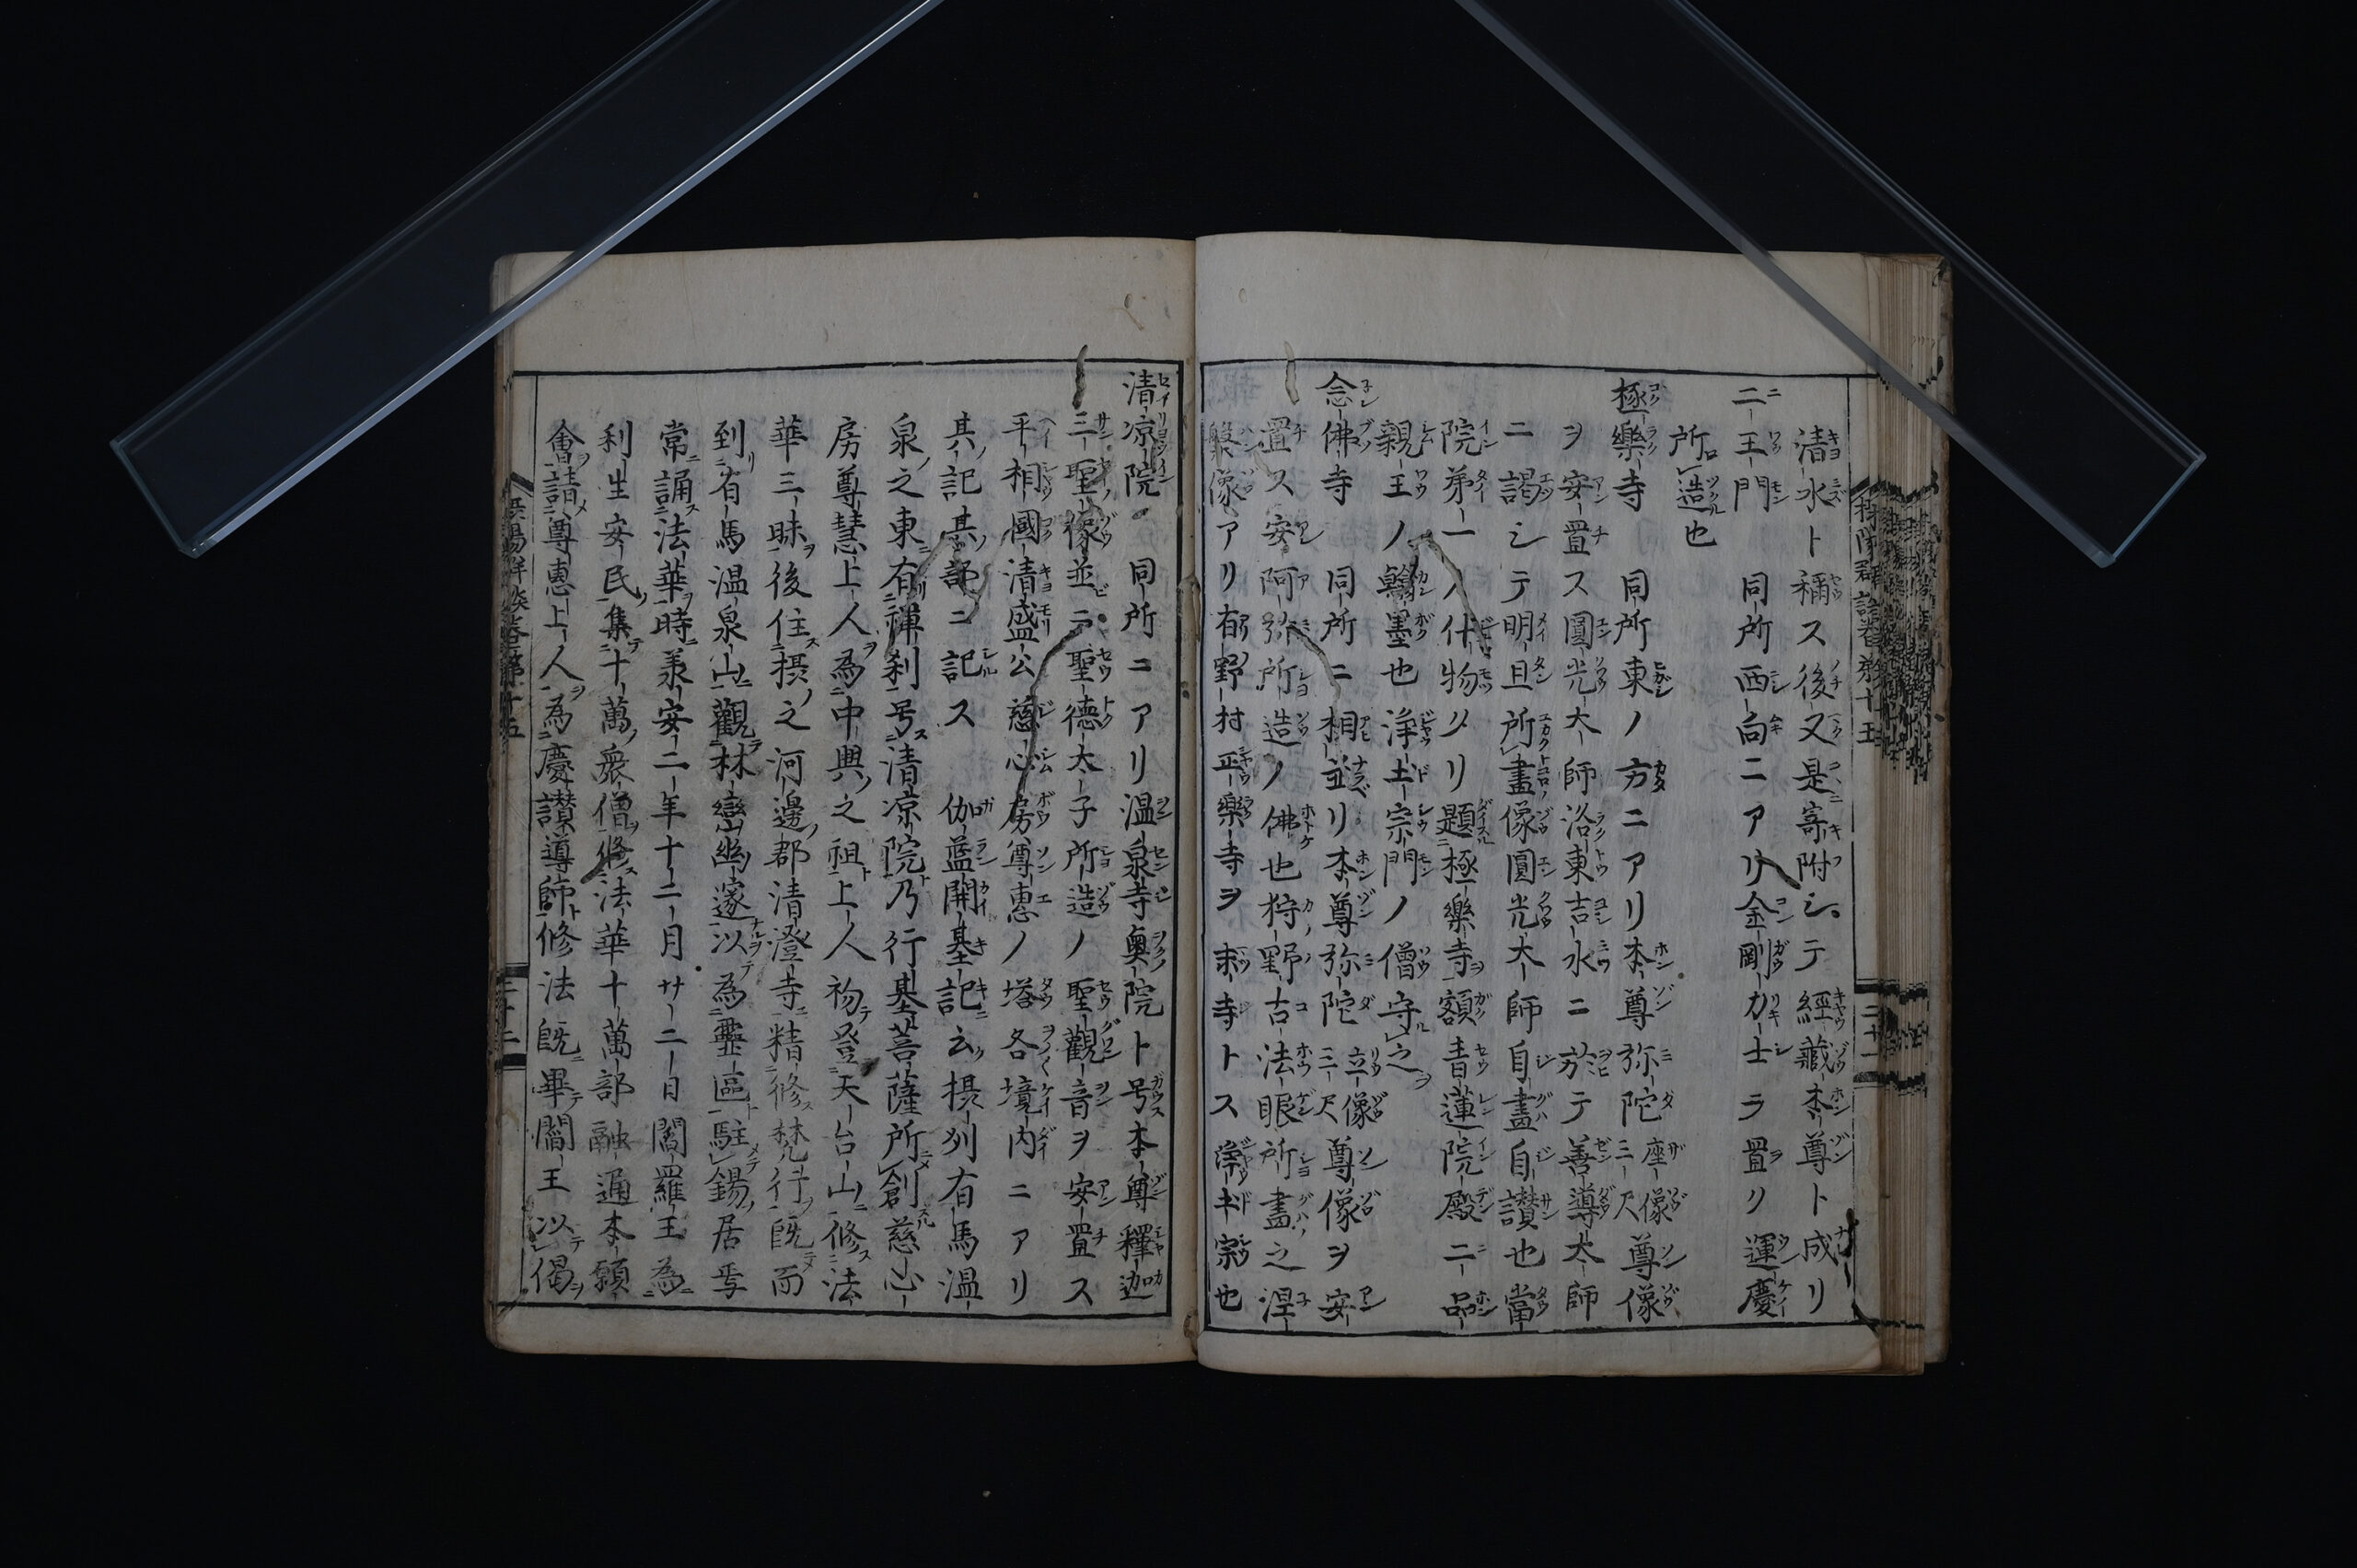 清水ト稱ス後又是寄附シテ經藏本尊ト成リ
二王門　同所西向ニアリ金剛力士ヲ置リ運慶
所造也
極樂寺　同所東ノ方ニアリ本尊弥陀座像三尺尊像
ヲ安置ス圓光大師洛東吉水ニ於テ善導大師
ニ謁シテ明旦所畫像圓光大師自畫自讃也當
院第一ノ什物メリ題極樂寺額青蓮院殿二品
親王ノ翰墨也浄土宗門ノ僧守之
念佛寺　同所ニ相並リ本尊弥陀立像三尺尊像ヲ安
置ス安阿弥所造ノ佛也狩野古法眼所畫之涅
槃像アリ有野村正樂寺ヲ末寺トス浄土宗也
清凉院　同所ニアリ温泉寺奥院ト号本尊釋迦
三聖像並ニ聖德太子所造ノ聖觀音ヲ安置ス
平相國清盛公慈心房尊惠ノ塔各境内ニアリ
其記其記ニ記ス　伽藍開基記云摂刕有馬温
泉之東有禅刹号清凉院乃行基菩薩所創慈心
房尊慧上人為中興之祖上人初登天台山修法
華三昧後住摂之河邊郡清澄寺精修梵行既而
到有馬温泉山觀林巒幽邃以為靈區駐錫居焉
常誦法華時兼安二年十二月廿二日閻羅王為
利生安民集十萬衆僧修法華十萬部融通本願
會請尊惠上人為慶讃導師修法既畢閻王以偈
二十一
二十二